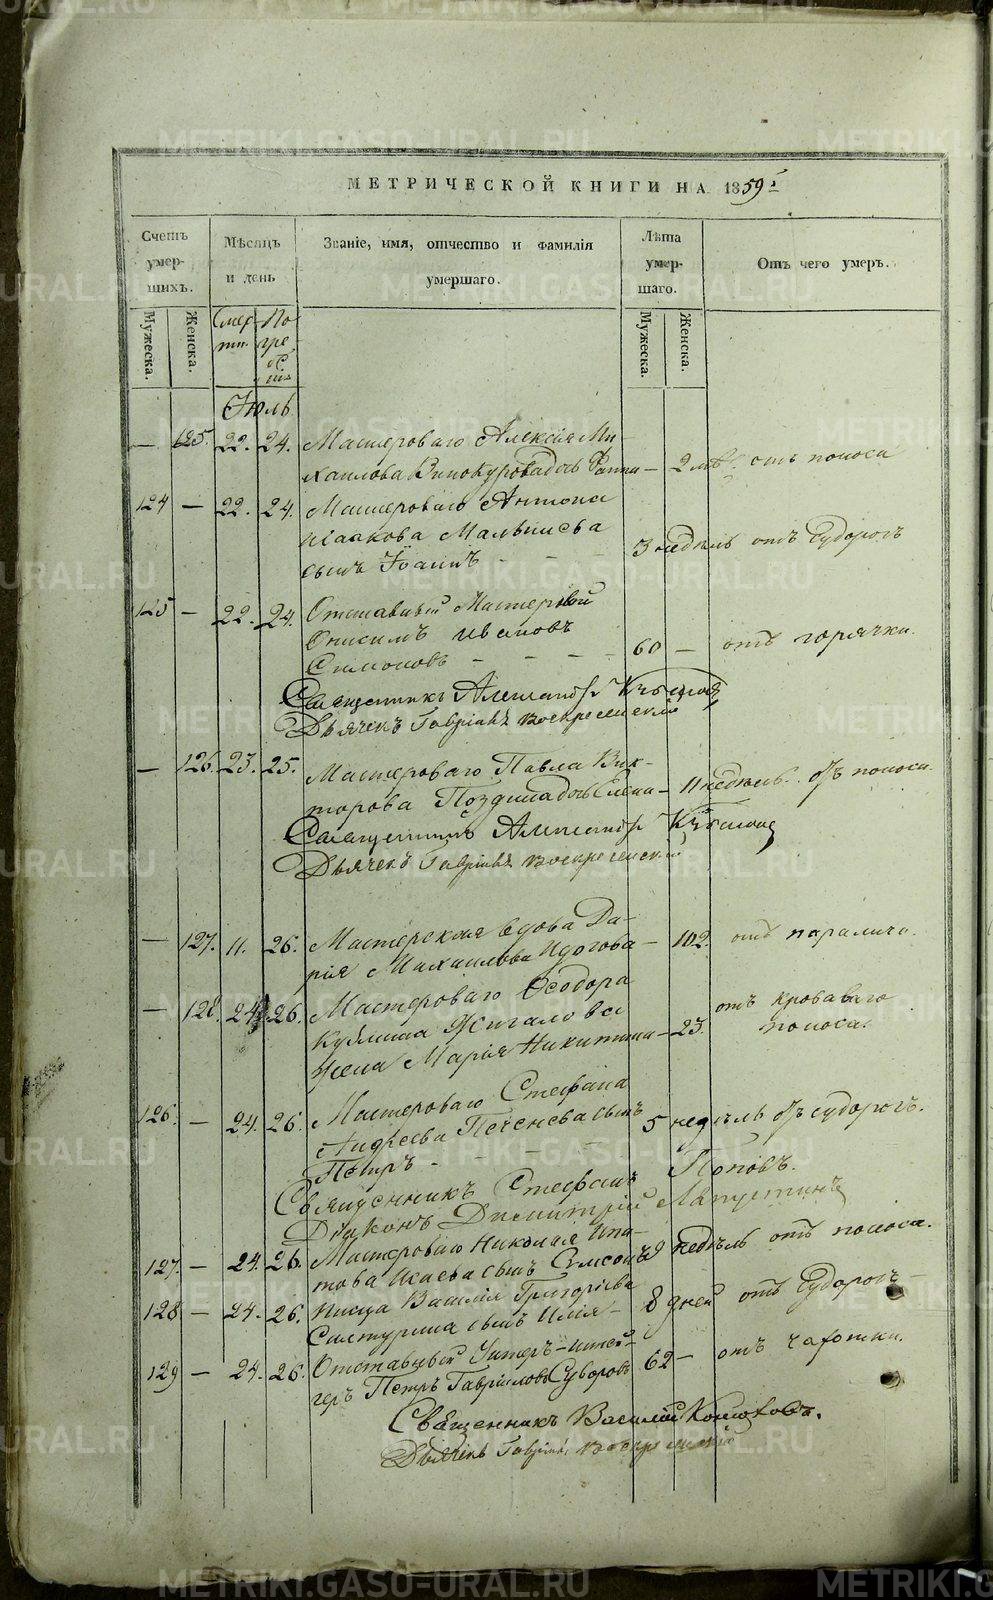 МЕТРИЧЕСКОЙ КНИГИ НА 1859 г
Счетъ умер- шихъ.
Мѣсяцъ и день
Званіе, имя, отчество и фамилія умершаго.
Лѣта умер- шаго.
Отъ чего умеръ.
Мужеска.
Женска.
Смер- ти.
По- гре
Мужеска.
Женска.
Іюль
— 125. 22. 24. Мастероваго Алексія Ми-
хаилова Винокурова дочь — 2 отъ поноса
124 — 22. 24. Мастероваго Антона
сынъ Іоаннъ - - - 3 недѣль отъ судорогъ
125 — 22. 24. Отставный Мастеровой
Онисимъ Ивановъ
Симоновъ - - - 60 — отъ горячки.
Священникъ Александръ
Дьячекъ Гавріилъ Воскресенский
— 126. 23. 25. Мастероваго Павла Вик-
торова дочь Елена — 11 недѣль. отъ поноса.
Священникъ Александръ
Дьячекъ Гавріилъ Воскресенский
— 127. 11. 26. Мастерская вдова Да-
рія Михаилова — 102. отъ паралича.
— 128. 24. 26. Мастероваго Ѳеодора
Кузмина Жигалова
жена Марія Никитина — 23. отъ кроваваго
поноса.
126. — 24. 26. Мастероваго Стефана
Андреева сынъ
Петръ - - - - 5 недѣль отъ судорогъ.
Священникъ Стефанъ Поповъ.
Діаконъ Димитрій Лапустинъ
127. — 24. 26. Мастероваго Николая Ипа-
това Исаева сынъ Самсонъ 9 недѣль отъ поноса.
128 — 24. 26. Писца Василія Григорьева
сынъ Илія — 8 дней отъ судорогъ —
129 — 24. 26. Отставный Унтеръ-шпей-
геръ Петръ Гавріиловъ Суворовъ 62 — отъ чахотки.
Священникъ Василій Конюховъ.
Дьячекъ Гавріилъ Воскресенский